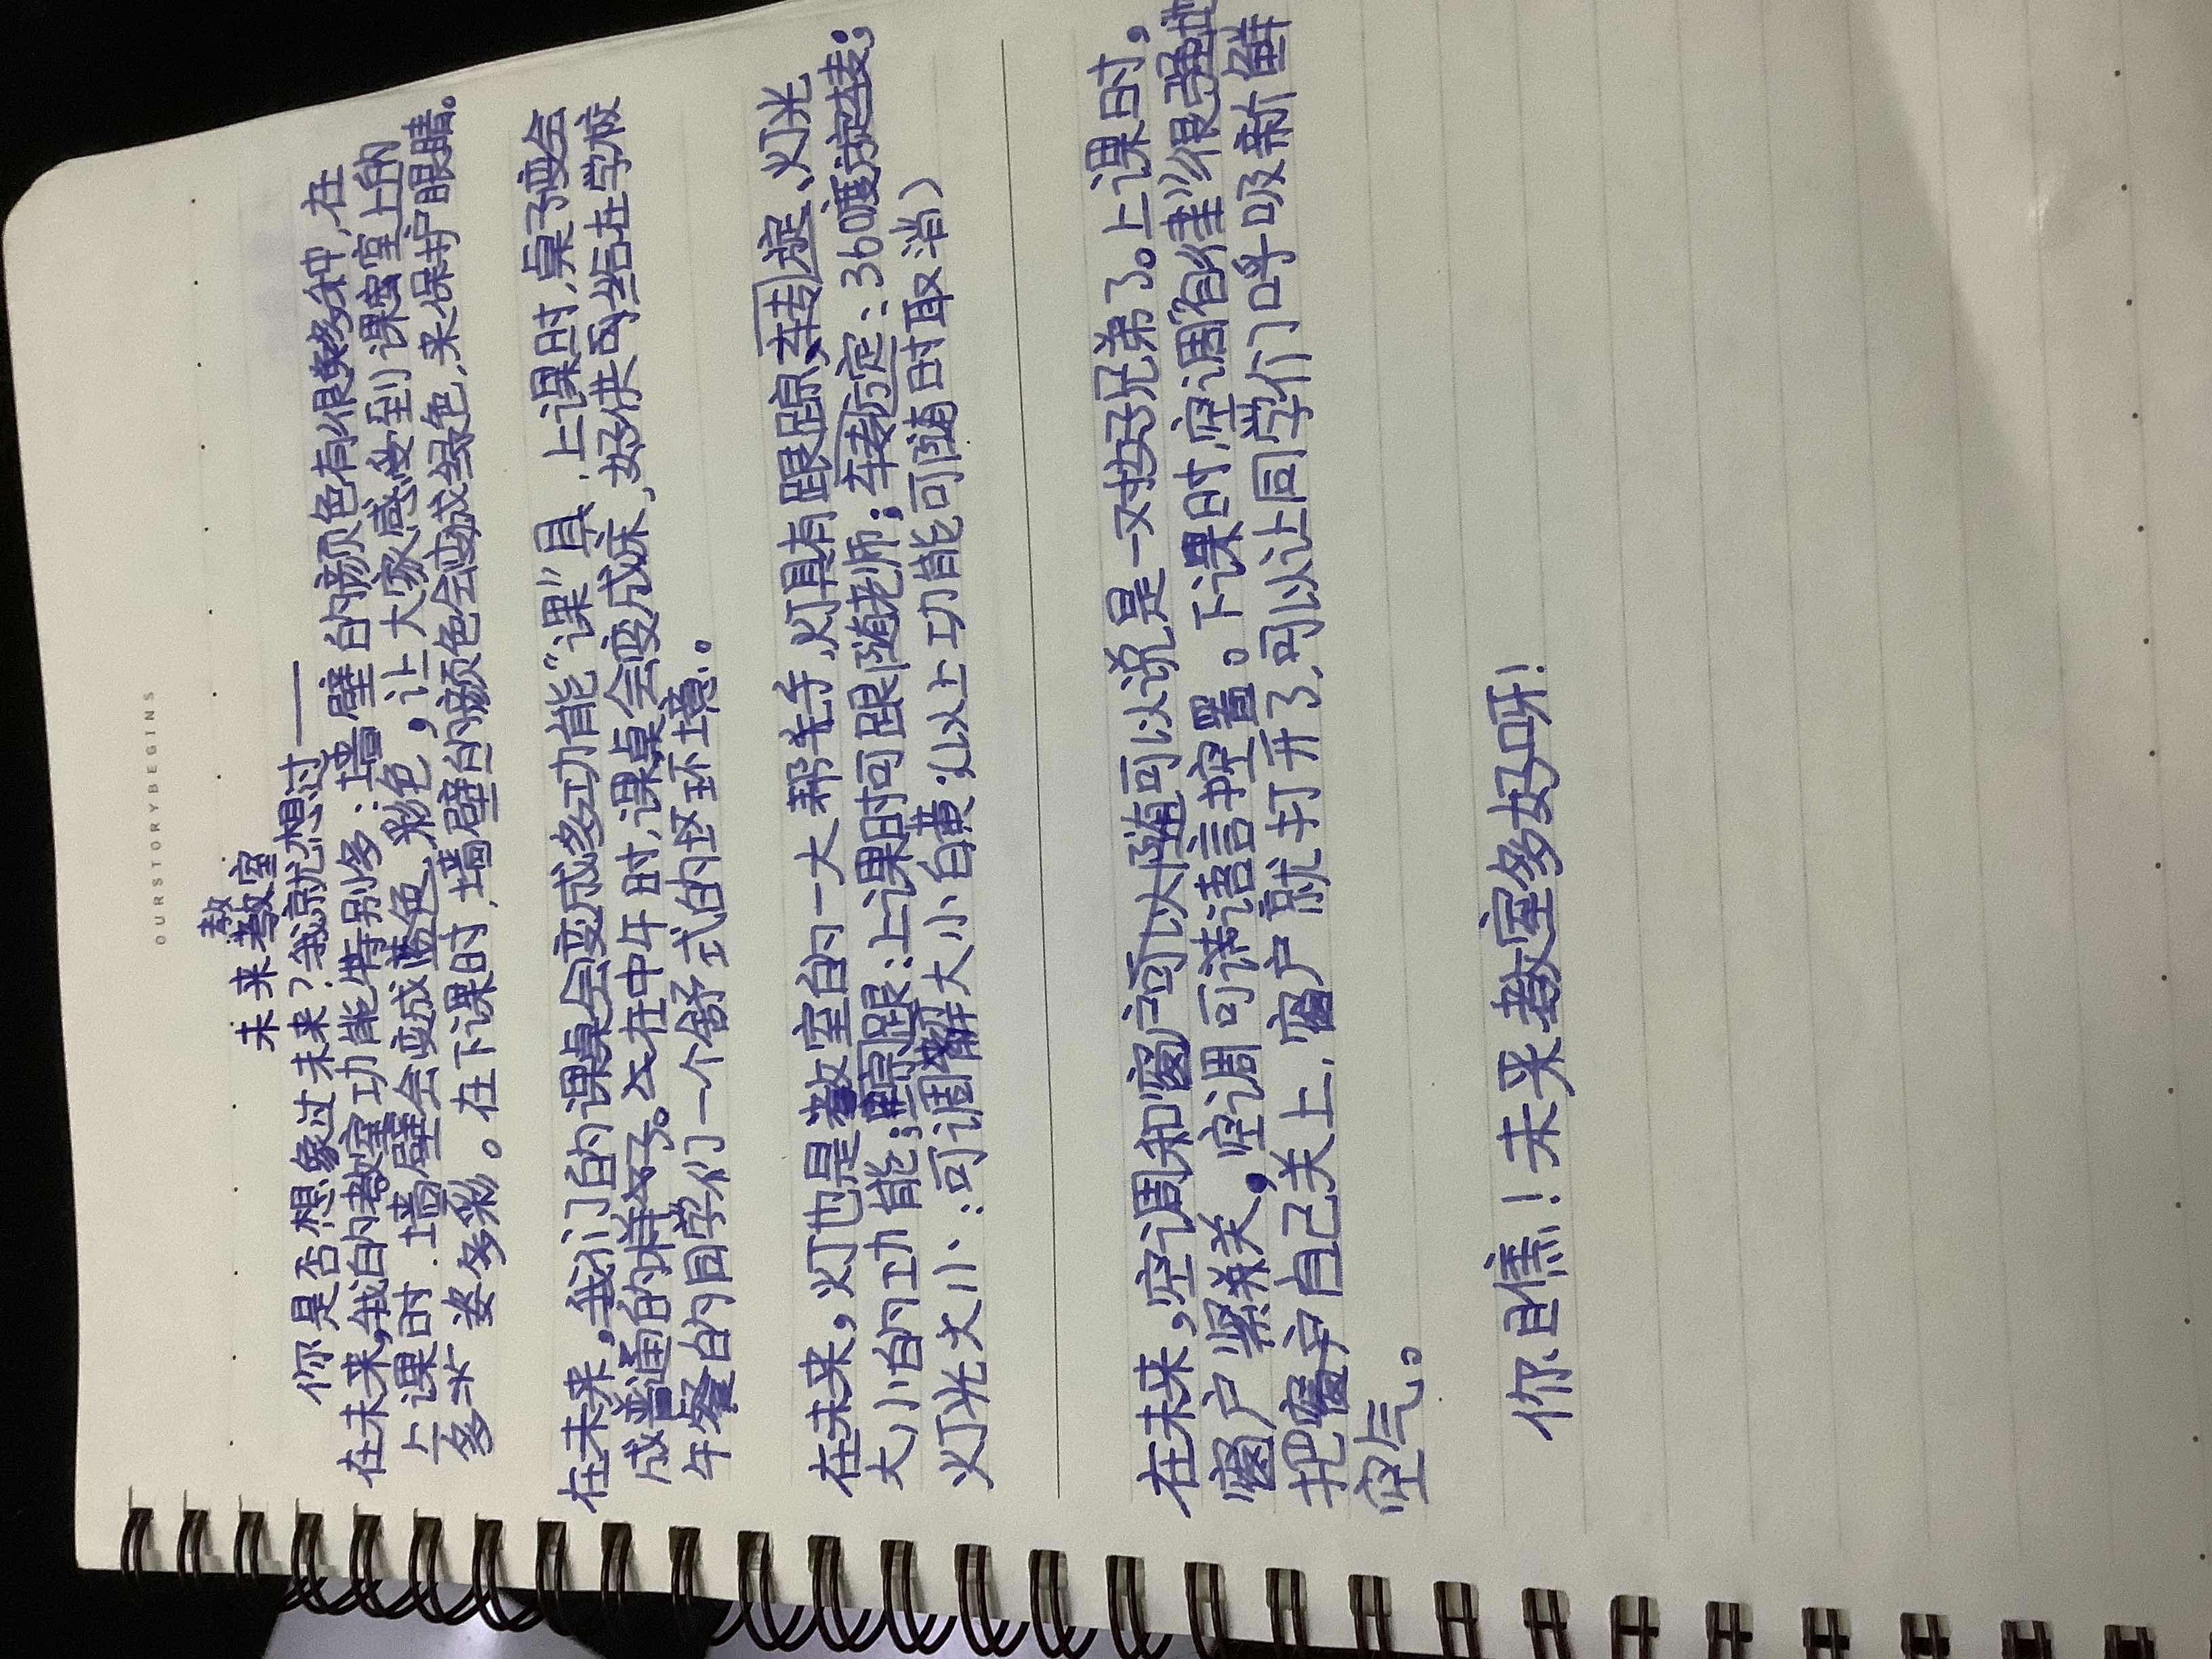 OURSTORYBEGINS
教
未来教室
你是否想象过未来？我就想过——
在未来，我的教室功能特别多：墙壁的颜色有很多种，在
上课时，墙壁会变成蓝色、彩色，让大家感受到课堂上的
多姿多彩。在下课时，墙壁的颜色会变成绿色，来保护眼睛。
在未来，我们的课桌会变成多功能“课”具，上课时，桌子变会
成普通的样子。在中午时，课桌会变成床，好供给在学校
午餐的同学们一个舒式的环境。
在未来，灯也是教室的一大帮手，灯具有跟踪，转定，灯光
大小的功能；跟踪：上课时可跟随老师；转定：360度旋转；
灯光大小：可调解大小（以上功能可随时取消）
在未来，空调和窗户可以随可以说是一对好兄弟了。上课时，
窗户紧关，空调可语言控置。下课时，空调
把窗户自己关上，窗户就打开了，可以让同学们呼吸新鲜
空气。
你自信！未来教室多好呀！